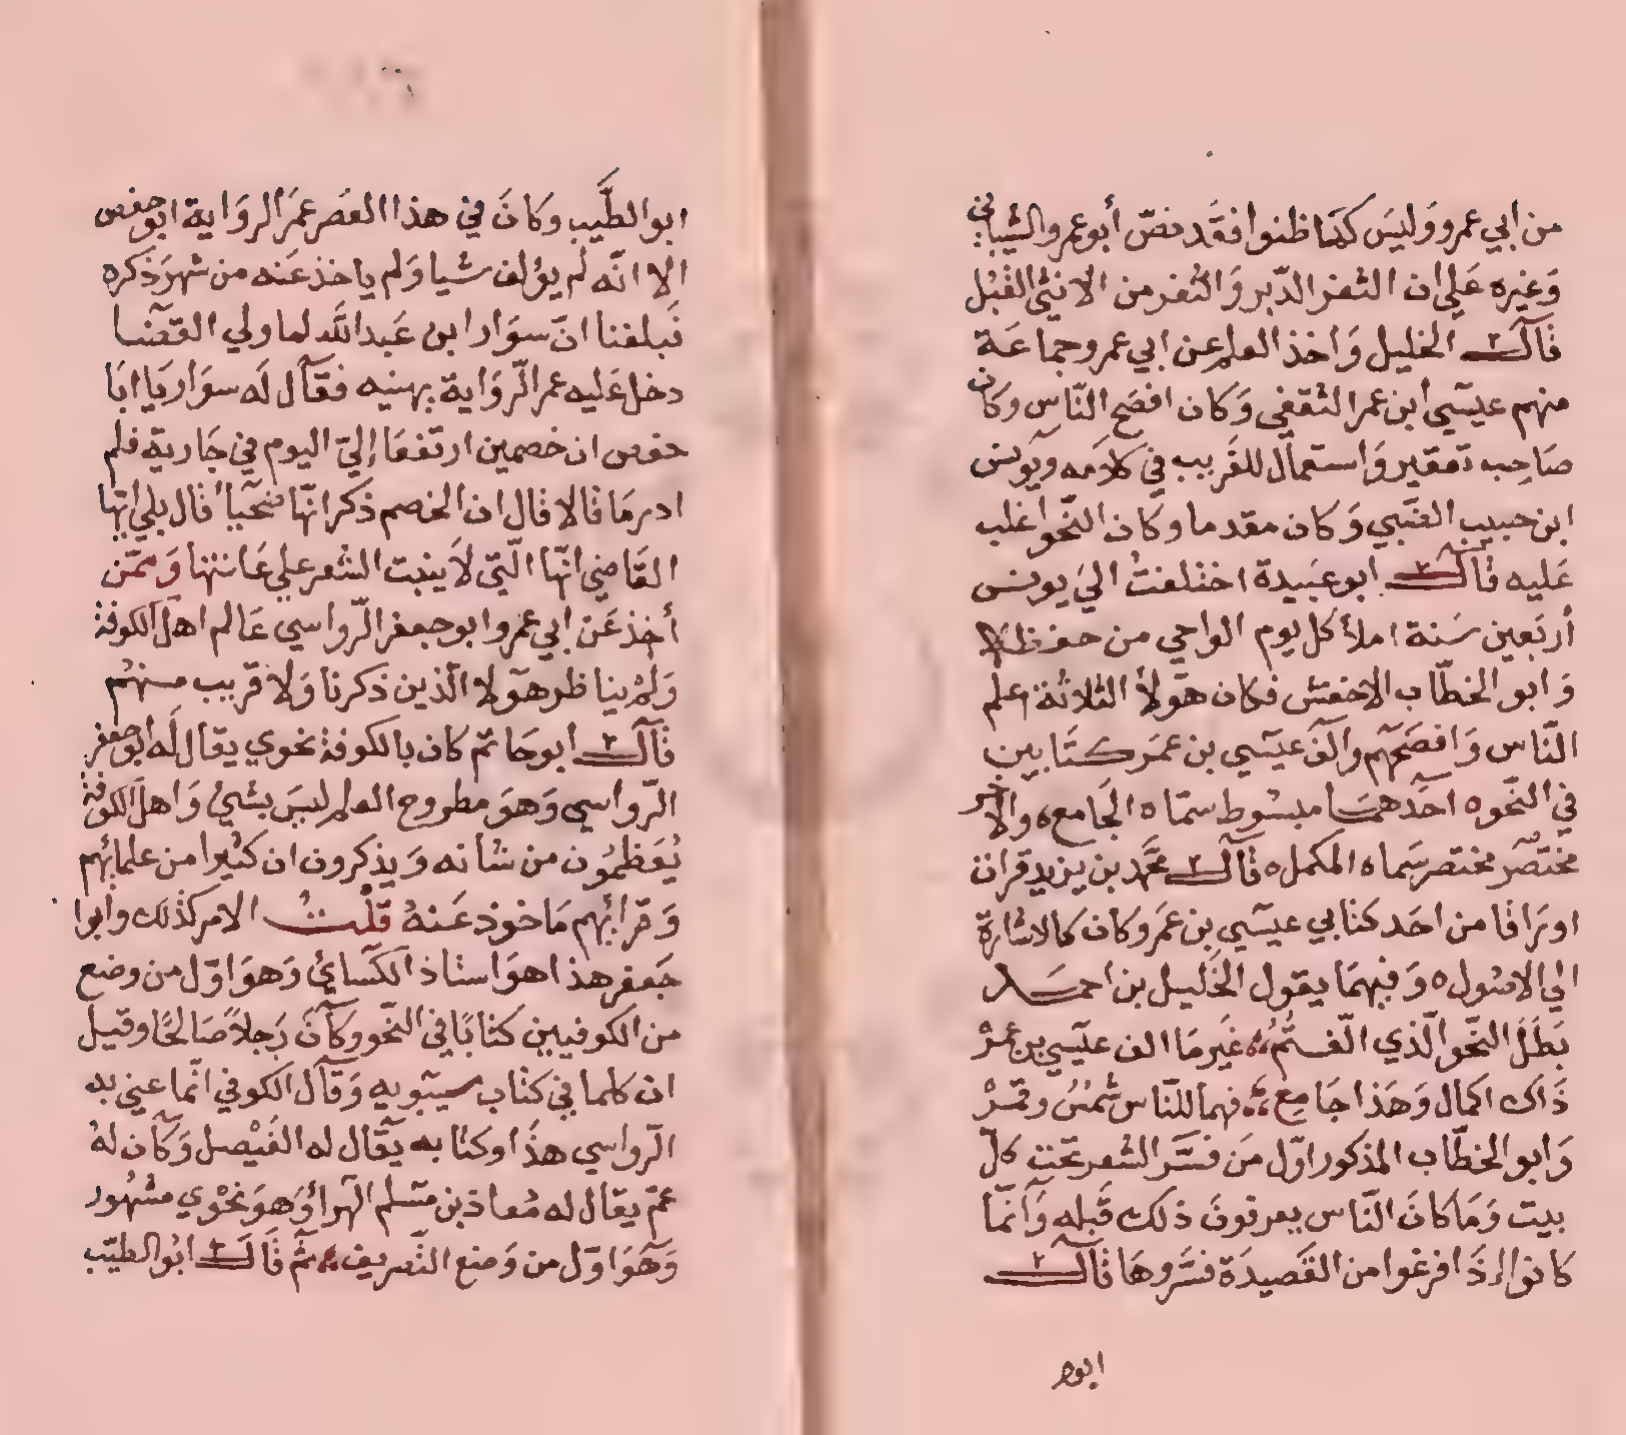 من ابي عمرو وَليسَ كمَا ظنوا فقَد نصّ أبو عمرو الشيباني
وَغيره عَلي ان الثفر الدّبر وَالثفر من الانثي القبُل
قاَلَ الخليل وَاخذ العلم عن ابي عمرو جماعَة
منهم عيسَي ابن عمر الثقفي وَكان افصَح النّاس وكان
صَاحِب تقعير وَاستعمال للغَريب في كلامَه ويونس
ابن حبيب الضَّبي وَكان مقدما وكان النّحو اغلب
عَليه قاَلَ ابو عبَيدة اختلفتُ اليَ يونس
أربَعين سَنة املأ كل يوم الواحي من حفظه
وَابو الخطّاب الاخفش فكان هوَلأ الثلاثة اعلم
النّاس وَافصَحهم والّفَ عيسَي بن عمَر كتَابين
في النّحو ه احَدهمَا مبسُوط سمّاه الجَامع ه والآخر
مختصَر سَماه المكمل ه قاَلَ محَّمد بن يزيد قران
اورَاقا من احَد كتابي عيسَي بن عمَر وكان كالاشارة
الي الاصُول ه وَفيهمَا يقول الخَليل بن احمَد
بَطَلَ النّحو الّذي الّفتُمُ غَير مَا الف عيسَي بن عمرْ
ذَاك اكمال وَهَذا جَامع فهما للنّاس شمسُ وقمَرْ
وَابو الخطّاب المذكور اوّل مَن فسَّر الشعر تحَت كلّ
بيت وَمَا كانَ النّاس يعرفونَ ذلك قَبله وَانّمَا
كانوا إذَا فرغوا من القَصيدَة فسَّروهَا قاَلَ
ابو
ابو الطَّيب وَكانَ في هذا العصَر عمَر الروَاية ابو حفص
الا انّه لم يؤلف شيا وَلم ياخذ عَنه من شهر ذَكره
فَبلغنا انّ سوَار ابن عَبد الله لما ولي القضَا
دخل عَليه عمر الرّوَاية يهنيه فقاَل لَه سوَار يَا ابَا
حفص ان خصمين ارتفعَا إليّ اليوم في جَارية فلم
ادر مَا قالا قال ان الخصم ذكر انّها ضحيَا قال بلي ايّها
القَاضي انّها الّتي لاَ ينبت الشعر علي عَانتها وَممّن
أخذ عَن ابي عمرو ابو جعفر الرّواسي عَالم اهل الكوفة
وَلم يناظر هوَلا الّذين ذكرنا وَلا قرَيب منهُم
قاَلَ ابو حَاتم كان بالكوفة نحوي يقال لَه ابو جعفر
الرّواسي وَهوَ مطروح العلم ليسَ بشيئ وَاهل الكوفة
يُعَظمُون من شانه وَيذكرون ان كثيرا من علمائهم
وَقرائهم مَاخوذ عَنهُ قلْتُ الامر كذلك وابوا
جَعفر هذا هوَ استاذ الكسَائي وَهوَ اوّل من وضع
من الكوفيين كتابًا في النّحو وكاَنَ رَجلاً صَالحًا وقيل
ان كلما في كتاب سيبَويه وَقَال الكوفي انّما عني به
الرّواسي هذَا وكتابه يقَال له الفَيْصل وَكاَن لهُ
عمّ يقال له مُعاذ بن مسَلم الهرائ وَهوَ نحْوي مشهُور
وَهوَ اوّل من وَضع التّصريف ثم قاَلَ ابُو الطيّب